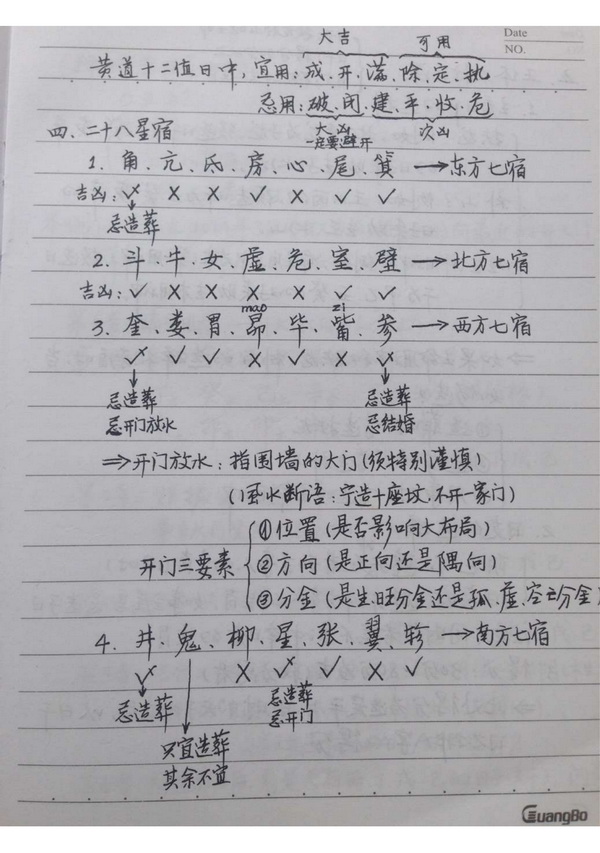 Date
NO.
大吉 可用
黄道十二值日中,宜用:成、开、满、除、定、执
忌用:破、闭、建、平、收、危
大凶 次凶
一定要避开
四.二十八星宿
1. 角、亢、氐、房、心、尾、箕 →东方七宿
吉凶: ✓× × × ✓ × ✓ ✓
忌造葬
2. 斗、牛、女、虚、危、室、壁 →北方七宿
吉凶: ✓ × × × × ✓ ✓
mao zi
3. 奎、娄、胃、昴、毕、觜、参 →西方七宿
✓× ✓ ✓ × ✓ × ✓×
忌造葬 忌造葬
忌开门放水 忌结婚
⇒开门放水:指围墙的大门(须特别谨慎)
(风水断语:宁造十座坟,不开一家门)
开门三要素
①位置(是否影响大布局)
②方向(是正向还是隅向)
③分金(是生.旺分金还是孤、虚、空亡分金)
4. 井、鬼、柳、星、张、翼、轸 →南方七宿
✓× × ✓× ✓ × ✓
忌造葬 忌造葬
忌开门
只宜造葬
其余不宜
GuangBo